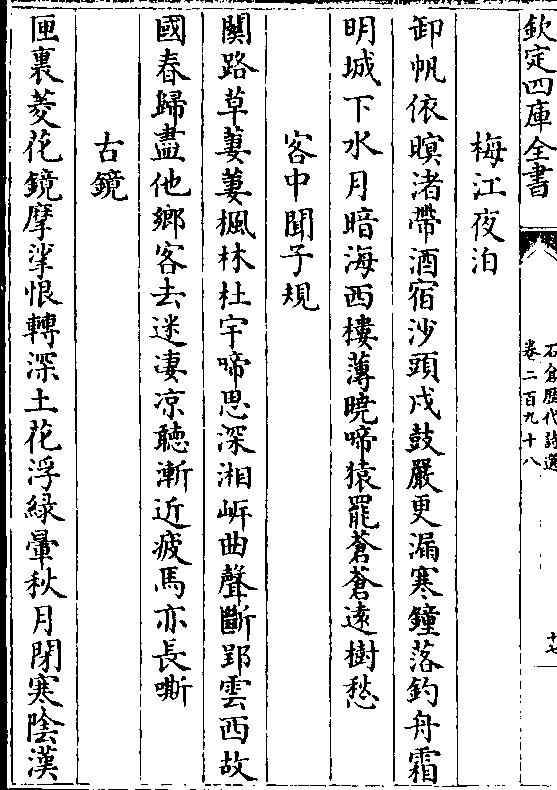 欽定四庫全書
石倉歷代詩選
卷二百九十八
十七
梅江夜泊
卸帆依暝渚帶酒宿沙頭戍鼓嚴更漏寒鐘落釣舟霜
明城下水月暗海西樓薄曉啼猿罷蒼蒼遠樹愁
客中聞子規
關路草萋萋楓林杜宇啼思深湘岸曲聲斷郢雲西故
國春歸盡他鄉客去迷凄凉聽漸近疲馬亦長嘶
古鏡
匣裏菱花鏡摩挲恨轉深土花浮緑暈秋月閉寒陰漢